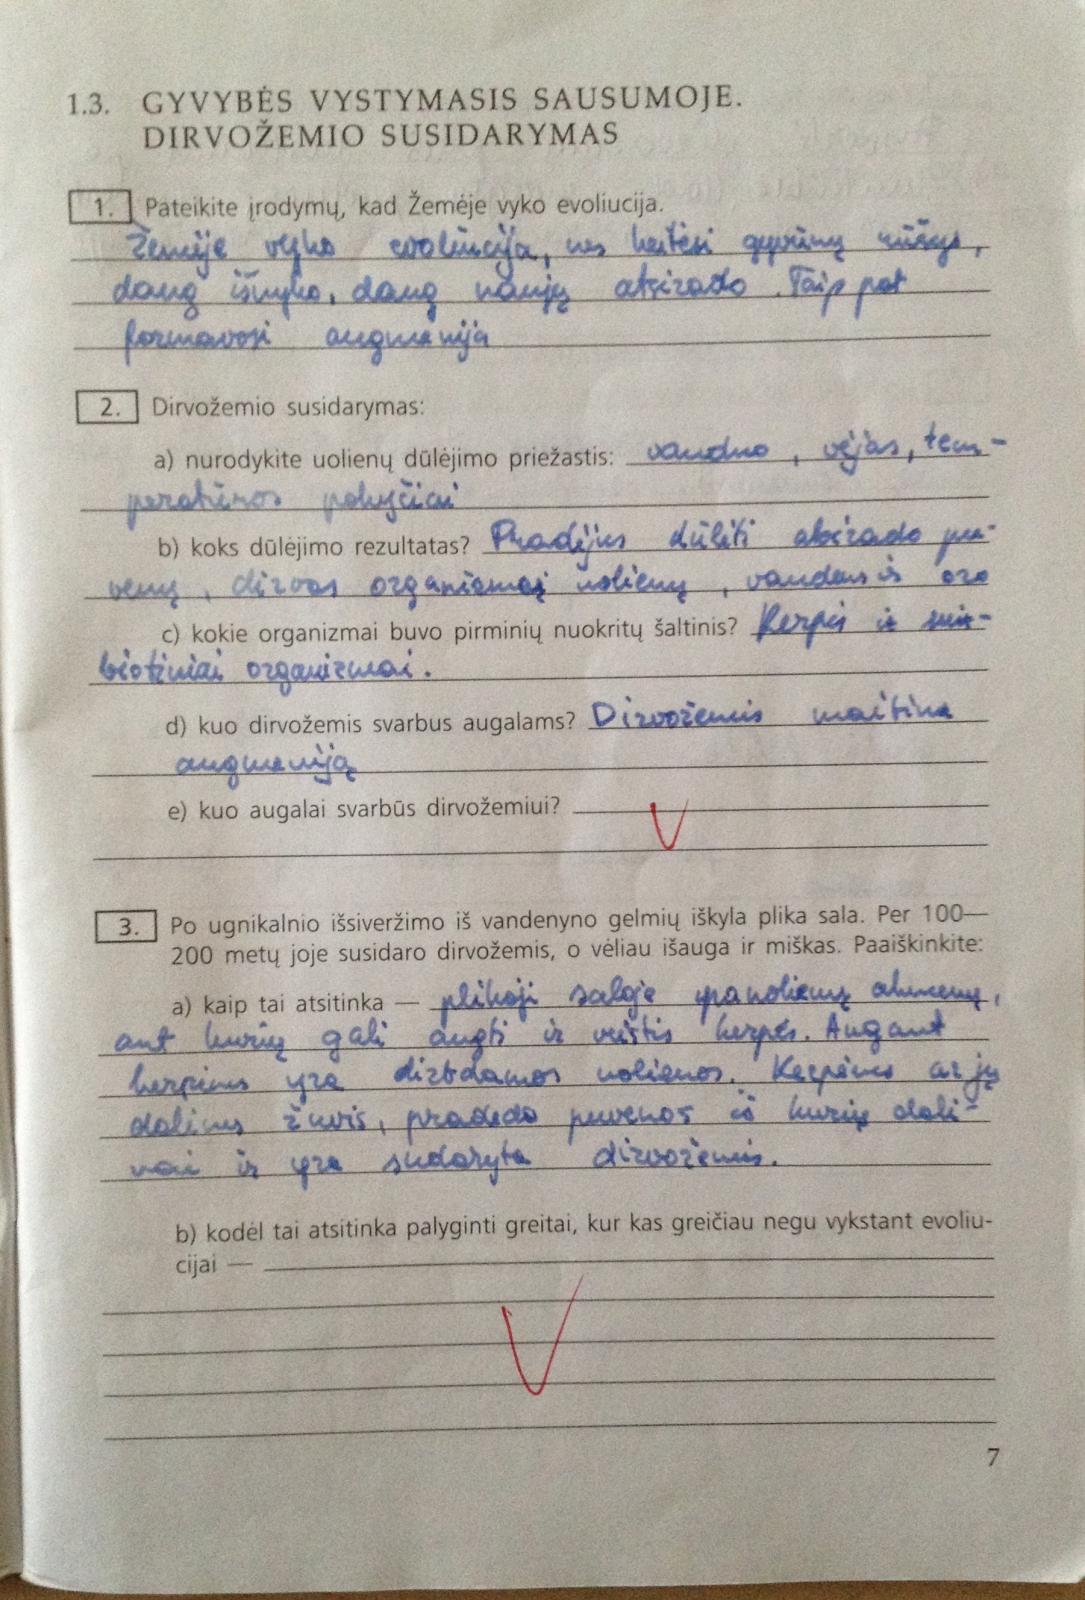 1.3. GYVYBĖS VYSTYMASIS SAUSUMOJE.
DIRVOŽEMIO SUSIDARYMAS
1. Pateikite įrodymų, kad Žemėje vyko evoliucija.
Žemėje vyko evoliucija, nes keitėsi gyvūnų rūšys,
daug išnyko, daug naujų atsirado. Taip pat
formavosi augmenija
2. Dirvožemio susidarymas:
a) nurodykite uolienų dūlėjimo priežastis: vanduo, vėjas, tem-
peratūros pokyčiai
b) koks dūlėjimo rezultatas? Pradėjus dūlėti atsirado pu-
venų, dirvos organizmai uolienų, vandens ir oro
c) kokie organizmai buvo pirminių nuokritų šaltinis? Kerpės ir sim-
biotiniai organizmai.
d) kuo dirvožemis svarbus augalams? Dirvožemis maitina
augmeniją
e) kuo augalai svarbūs dirvožemiui?
3. Po ugnikalnio išsiveržimo iš vandenyno gelmių iškyla plika sala. Per 100—
200 metų joje susidaro dirvožemis, o vėliau išauga ir miškas. Paaiškinkite:
a) kaip tai atsitinka — plikoji saloje yra uolienų akmenų,
ant kurių gali augti ir veistis kerpės. Augant
kerpėms yra dirbdamos uolienos. Kerpėms ar jų
dalims žuvis, pradeda puvenos iš kurių dali-
nai ir yra sudaryta dirvožemis.
b) kodėl tai atsitinka palyginti greitai, kur kas greičiau negu vykstant evoliu-
cijai —
7